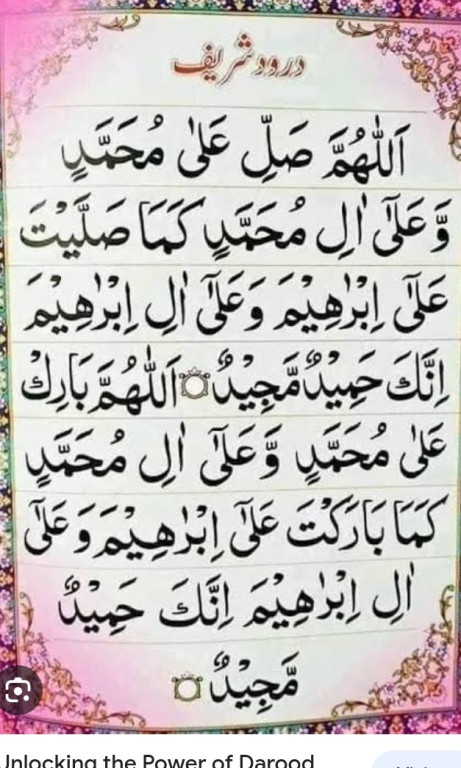 درود شریف
اَللّٰهُمَّ صَلِّ عَلٰى مُحَمَّدٍ
وَّعَلٰٓى اٰلِ مُحَمَّدٍ كَمَا صَلَّيْتَ
عَلٰٓى اِبْرٰهِيْمَ وَعَلٰٓى اٰلِ اِبْرٰهِيْمَ
اِنَّكَ حَمِيْدٌ مَّجِيْدٌ ۝ اَللّٰهُمَّ بَارِكْ
عَلٰى مُحَمَّدٍ وَّعَلٰٓى اٰلِ مُحَمَّدٍ
كَمَا بَارَكْتَ عَلٰٓى اِبْرٰهِيْمَ وَعَلٰٓى
اٰلِ اِبْرٰهِيْمَ اِنَّكَ حَمِيْدٌ
مَّجِيْدٌ ۝
Unlocking the Power of Darood